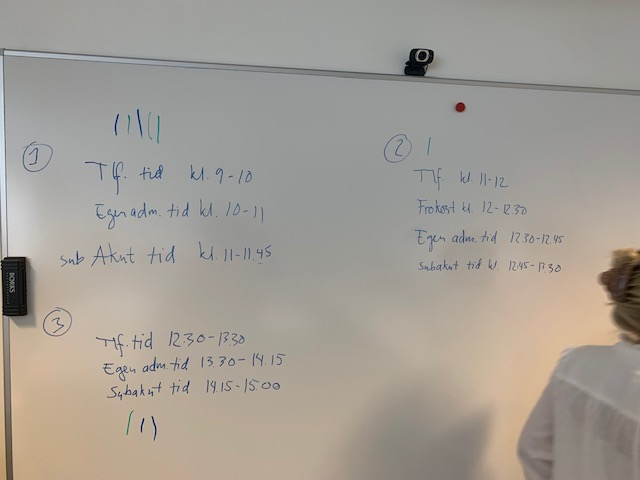 1
Tlf. tid kl. 9-10
Egen adm. tid kl. 10-11
sub Akut tid kl. 11-11.45
2
Tlf. kl. 11-12
Frokost kl. 12-12.30
Egen adm. tid 12.30-12.45
Subakut tid kl 12.45-13.30
3
Tlf. tid 12.30-13.30
Egen adm. tid 13.30-14.15
Subakut tid 14.15-15.00